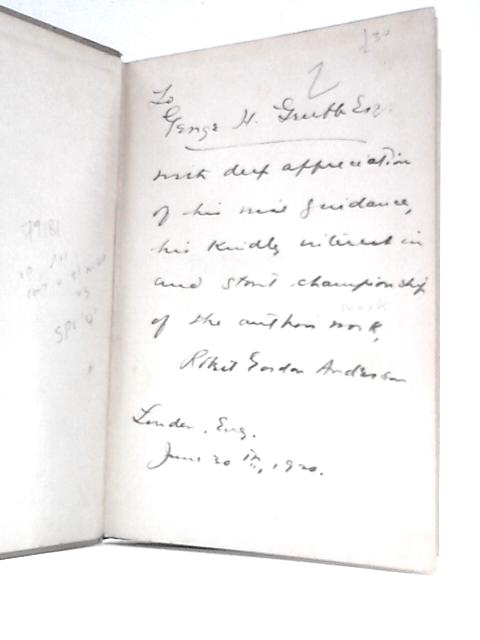 £30
To
George H. Grubb Esq.
with deep appreciation
of his wise guidance,
his kindly interest in
and stout championship
of the authors work,
work
Robert Gordon Anderson
London, Eng.
June 20th, 1920.